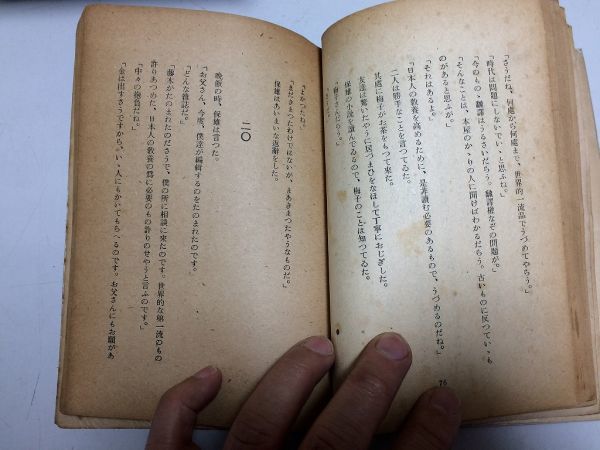 「さうだね、何處から何處まで、世界的一流品でうづめてやらう。」
「時代は問題にしないでいゝと思ふね。」
「今のもの、飜譯はうるさいだらう。飜譯權などの問題が。」
「そんなことは、本屋のかゝりの人に聞けばわかるだらう。古いものに反つていゝも
のがあると思ふが。」
「それはあるよ。」
「日本人の教養を高めるために、是非讀む必要のあるもので、うづめるのだね。」
二人は勝手なことを言つてゐた。
其處に梅子がお茶をもつて來た。
友達は驚いたやうに居づまひをなほして丁寧におじぎした。
保雄の小説を讀んでゐるので、梅子のことは知つてゐた。
「梅子さんだらう。」
76
「まだきまつたわけではないが、まあきまつたやうなものだ。」
保雄はあいまいな返辭をした。
二〇
晩飯の時、保雄は言つた。
「お父さん、今度、僕達が編輯するのをたのまれたのです。」
「どんな雜誌だ。」
「藤木がたのまれたのださうで、僕の所に相談に來たのです。世界的な第一流のもの
許りあつめた、日本人の教養の爲に必要のもの許りのせやうと言ふのです。」
「中々の抱負だね。」
「金は出すさうですから、いゝ人にもかいてもらへるのです。お父さんにもお願があ